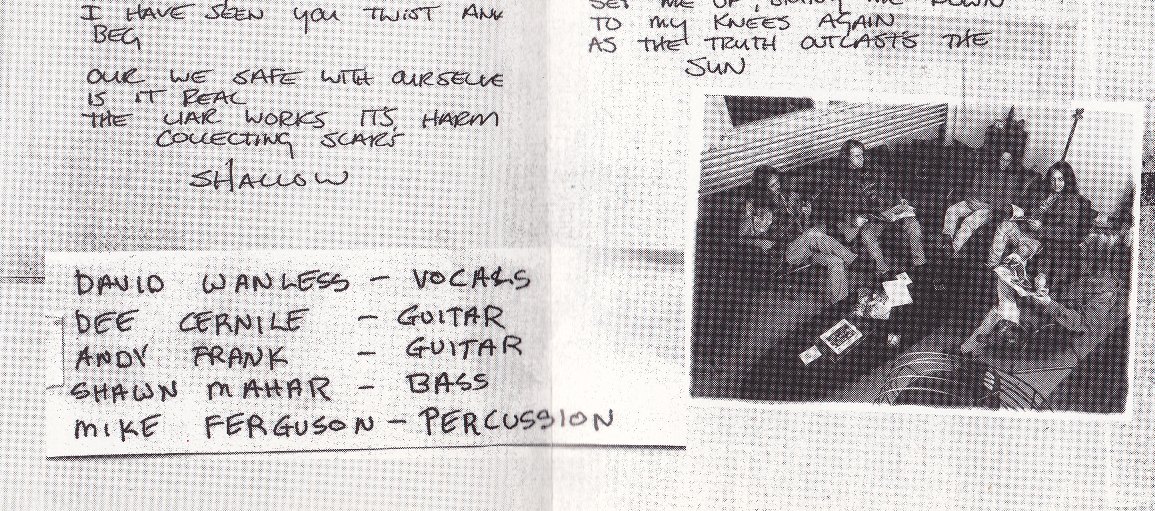 I HAVE SEEN YOU TWIST AND
BEG
OUR WE SAFE WITH OURSELVE
IS IT REAL
THE LIAR WORKS ITS HARM
COLLECTING SCARS
SHALLOW
DAVID WANLESS - VOCALS
DEE CERNILE - GUITAR
ANDY FRANK - GUITAR
SHAWN MAHAR - BASS
MIKE FERGUSON - PERCUSSION
SET ME UP, BRING ME DOWN
TO MY KNEES AGAIN
AS THE TRUTH OUTCASTS THE
SUN